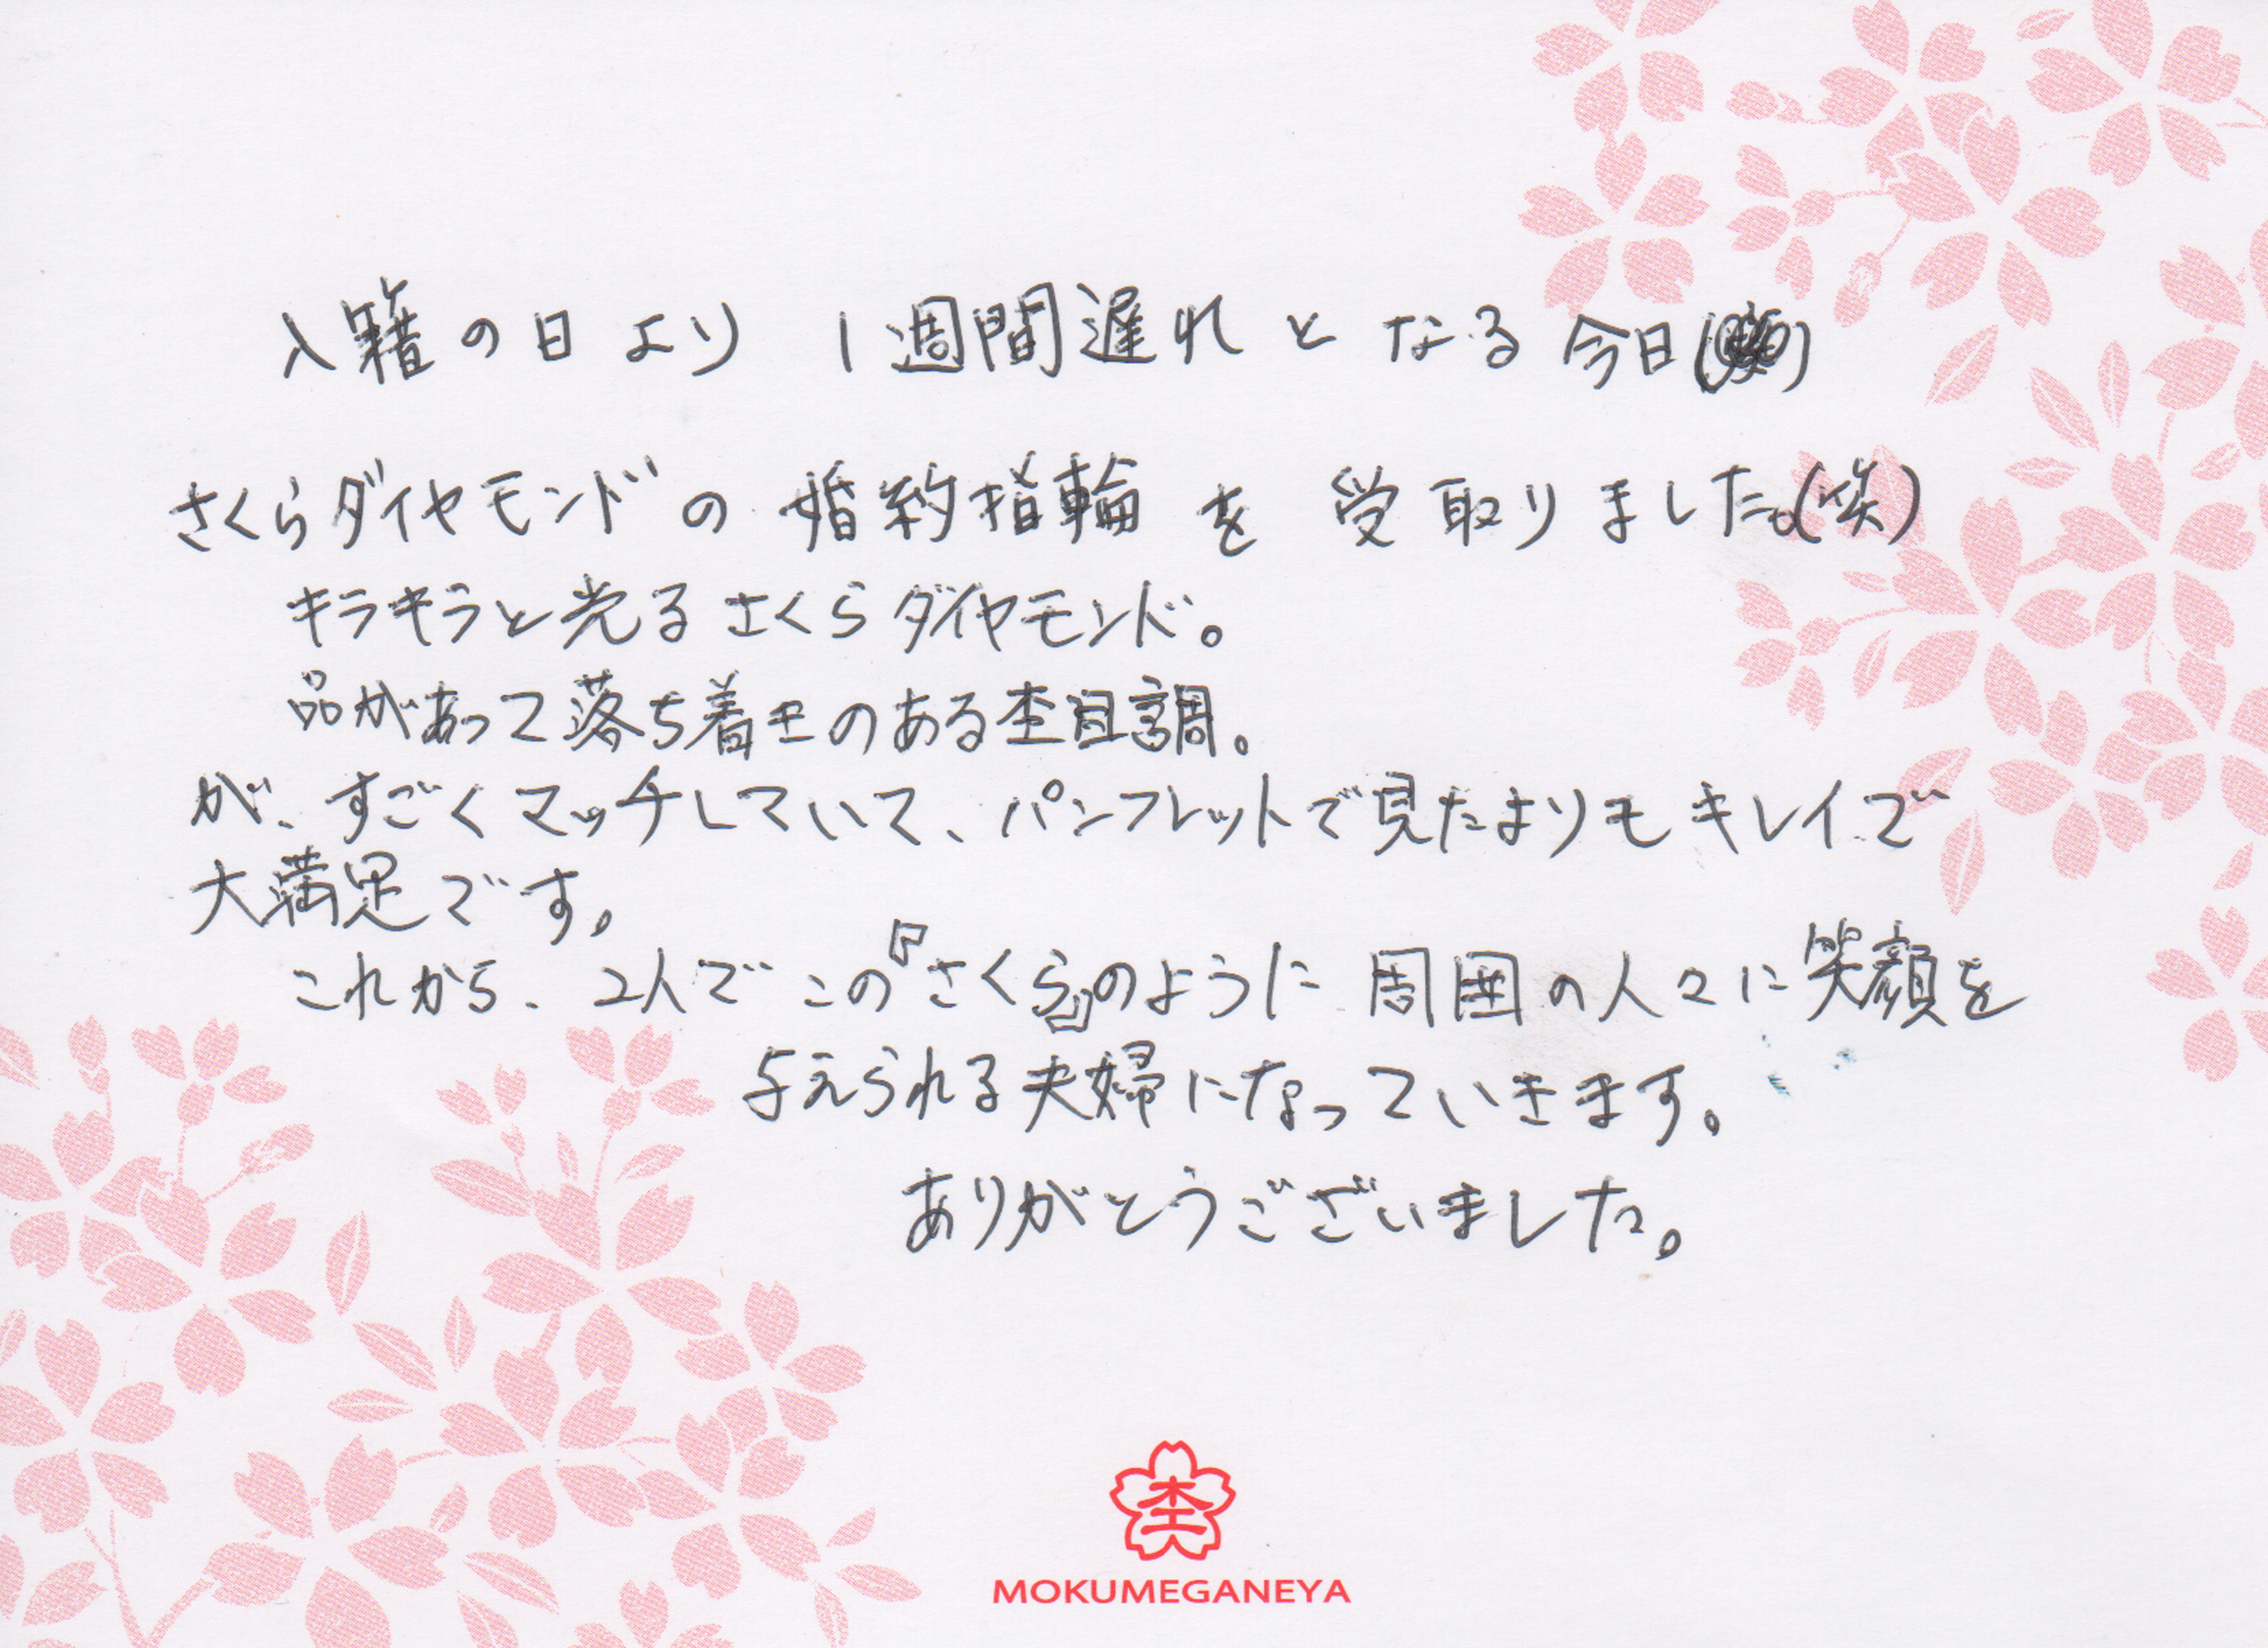 入籍の日より 1週間遅れとなる今日
さくらダイヤモンドの婚約指輪を受取りました。(笑)
キラキラと光るさくらダイヤモンド。
品があって落ち着きのある杢目調。
が、すごくマッチしていて、パンフレットで見たよりもキレイで
大満足です。
これから、2人でこの『さくら』のように周囲の人々に笑顔を
与えられる夫婦になっていきます。
ありがとうございました。
杢
MOKUMEGANEYA